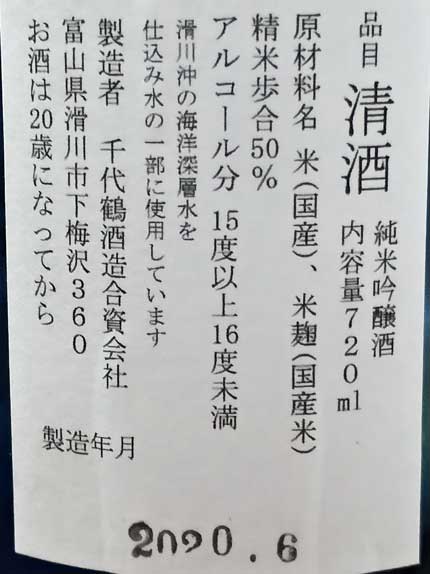 品目 清酒 純米吟醸酒
内容量720ml
原材料名 米(国産)、米麹(国産米)
精米歩合50%
アルコール分 15度以上16度未満
滑川沖の海洋深層水を
仕込み水の一部に使用しています
製造者 千代鶴酒造合資会社
富山県滑川市下梅沢360
お酒は20歳になってから
製造年月
2020.6